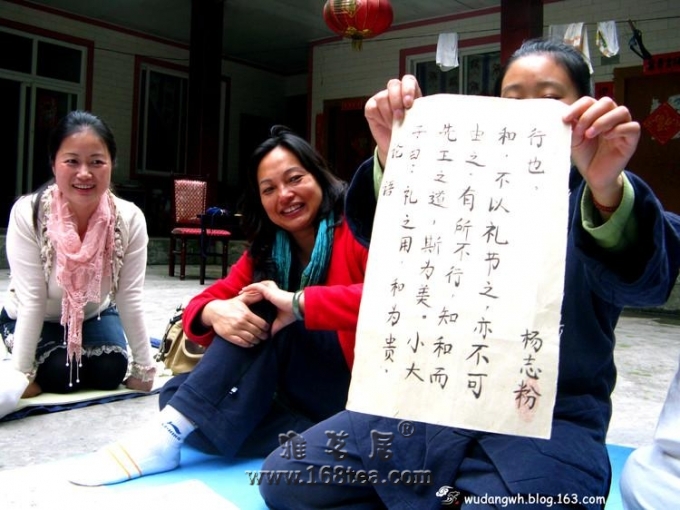 论语
子曰：礼之用，和为贵，
先王之道，斯为美。小大
由之，有所不行，知和而
和，不以礼节之，亦不可
行也、
杨志粉
雅茗居®
www.168tea.com
wudangwh.blog.163.com